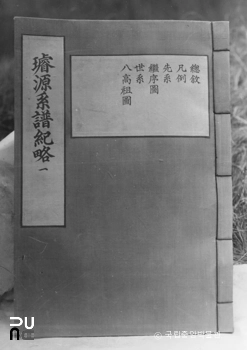 璿源系譜紀略 一
總敘
凡例
先系
繼序圖
世系
八高祖圖
국립중앙박물관